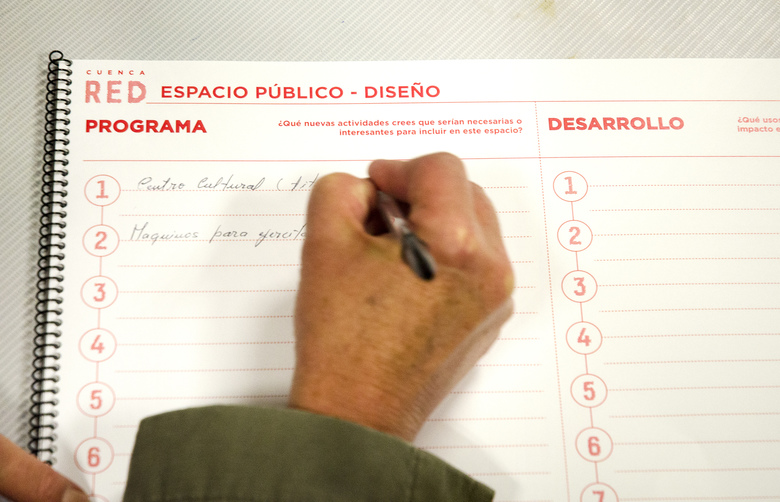 CUENCA
RED
ESPACIO PÚBLICO - DISEÑO
PROGRAMA
¿Qué nuevas actividades crees que serían necesarias o
interesantes para incluir en este espacio?
1 Centro Cultural (
2 Maquinas para
3
4
5
6
DESARROLLO
¿Qué usos
impacto e
1
2
3
4
5
6
7